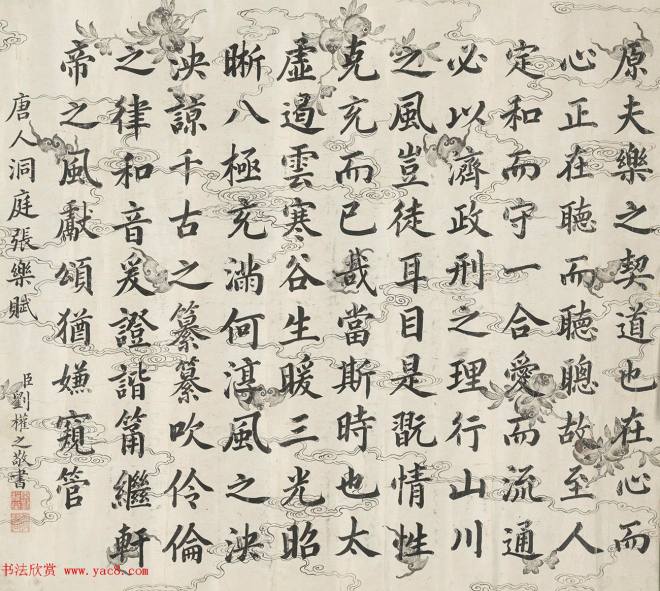 原夫樂之契道也在心而
心正在聽而聽聰故至人
定和而守一合愛而流通
必以濟政刑之理行山川
之風豈徒耳目是翫情性
克充而已哉當斯時也太
虛遏雲寒谷生暖三光昭
晰八極充滿何淳風之泱
泱諒千古之纂纂吹伶倫
之律和音爰證諧箾繼軒
帝之風獻頌猶嫌窺管
唐人洞庭張樂賦
臣劉權之敬書
书法欣赏 www.yac8.com